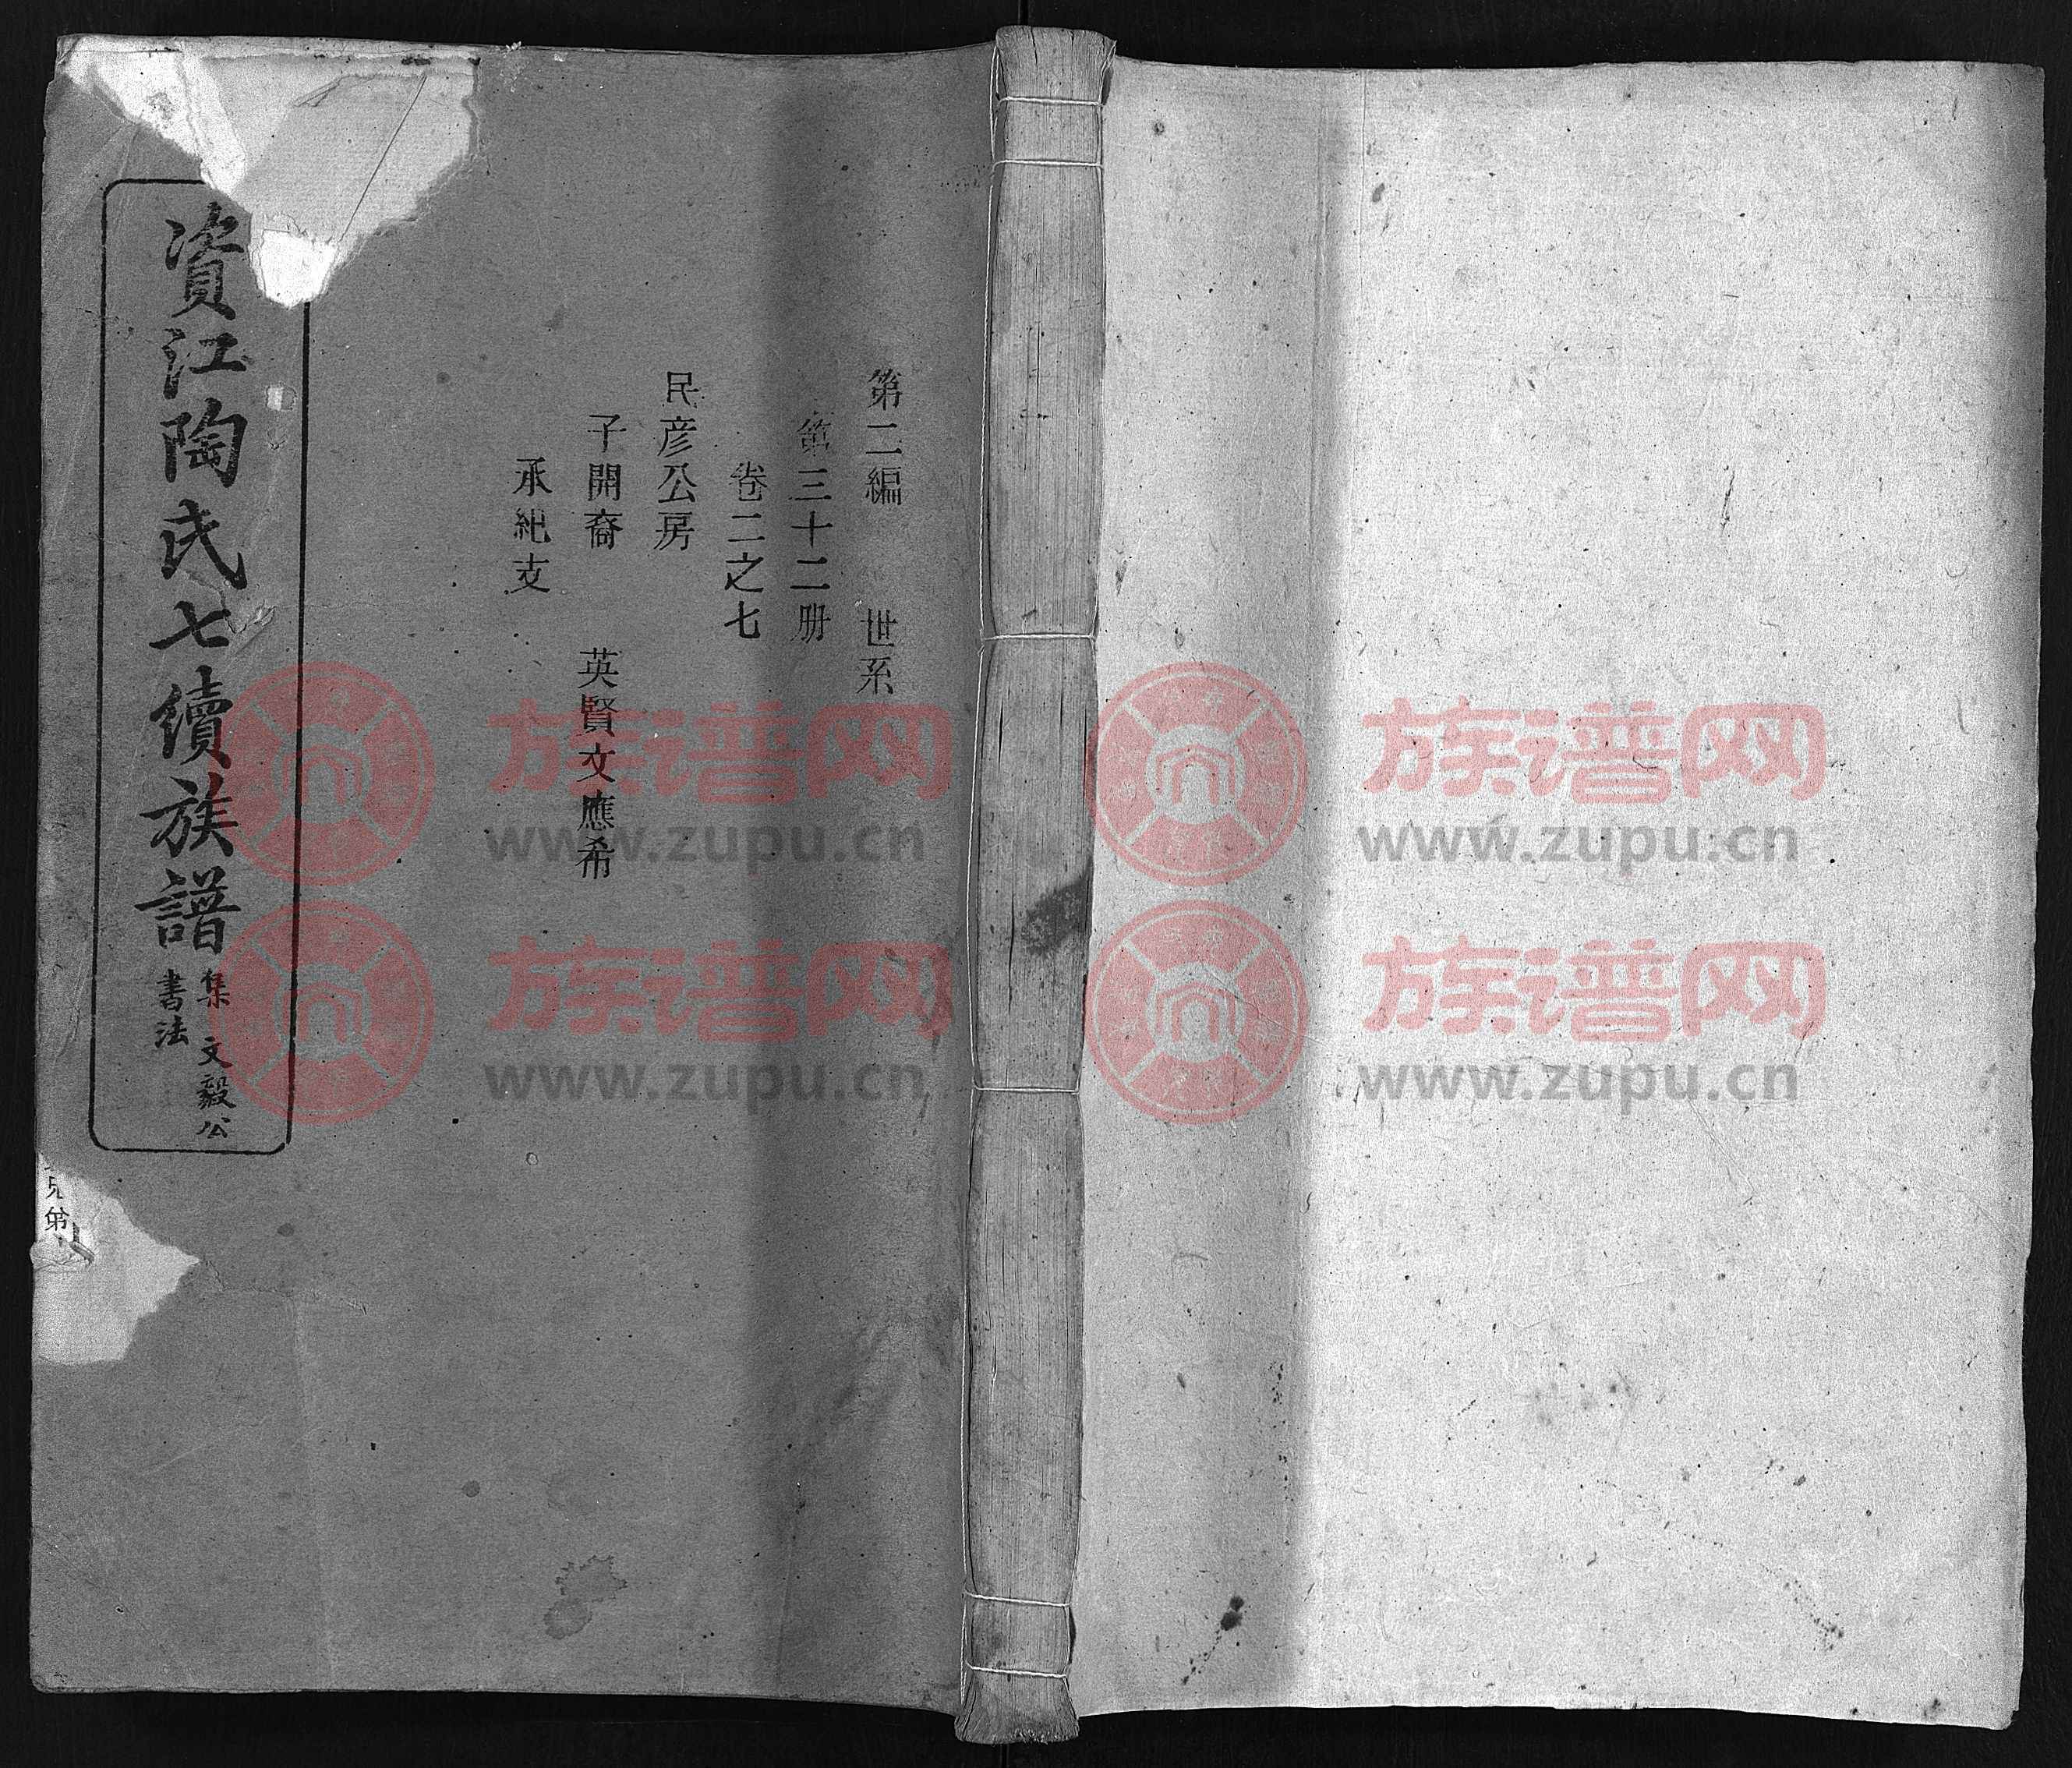 第二編　世系
第三十二册
卷二之七
民彦公房
子開裔　英賢文應希
承紀支
資江陶氏七續族譜
集文毅公
書法
兄弟
族谱网
www.zupu.cn
族谱网
www.zupu.cn
族谱网
www.zupu.cn
族谱网
www.zupu.cn